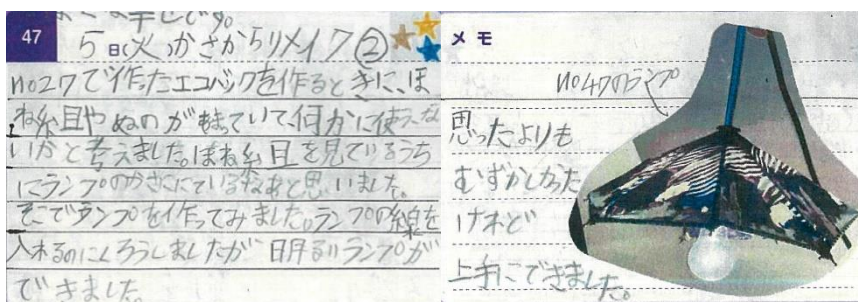 47
5日(火)かさからリメイク②
no27で作ったエコバックを作るときに、ほ
ね組やぬのがあまっていて、何かに使えな
いかと考えました。ほね組を見ているうち
にランプのかさににているなあと思いました。
そこでランプを作ってみました。ランプの線を
入れるのにくろうしましたが明るいランプが
できました。
メモ
no47のランプ
思ったよりも
むずかしかった
けれど
上手にできました。